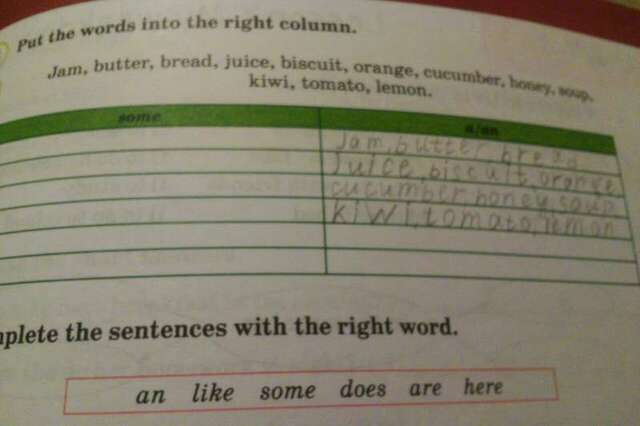 Put the words into the right column.
Jam, butter, bread, juice, biscuit, orange, cucumber, honey, soup,
kiwi, tomato, lemon.
some a/an
Jam, butter, bread
Juice, biscuit, orange
cucumber, honey, soup
kiwi, tomato, lemon
mplete the sentences with the right word.
an like some does are here